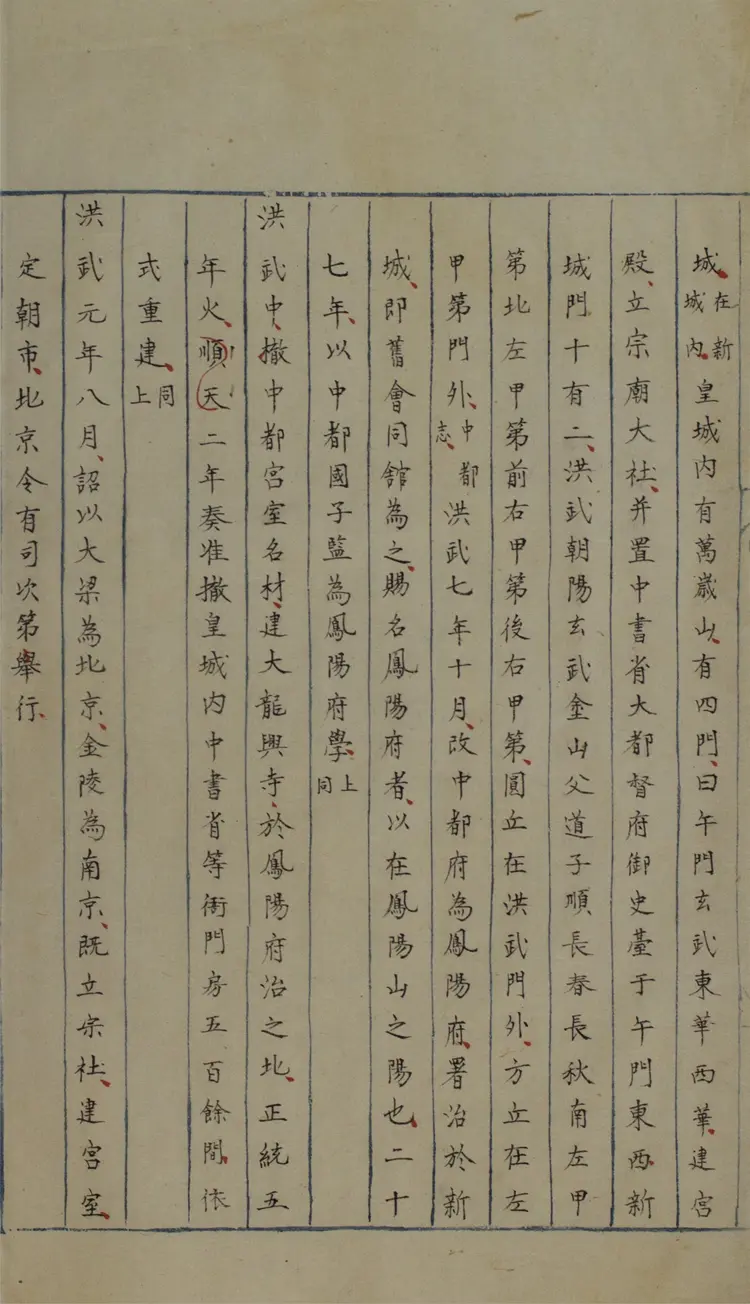 城在新城內皇城內有萬歲山有四門曰午門玄武東華西華建宮
殿立宗廟大社并置中書省大都督府御史臺于午門東西新
城門十有二洪武朝陽玄武塗山父道子順長春長秋南左甲
第北左甲第前右甲第後右甲第圓丘在洪武門外方丘在左
甲第門外中都志洪武七年十月改中都府為鳳陽府署治於新
城即舊會同舘為之賜名鳳陽府者以在鳳陽山之陽也二十
七年以中都國子監為鳳陽府學上同
洪武中撤中都宮室名材建大龍興寺於鳳陽府治之北正統五
年火順天二年奏准撤皇城内中書省等衙門房五百餘間依
式重建同上
洪武元年八月詔以大梁為北京金陵為南京既立宗社建宮室
定朝市北京令有司次第舉行